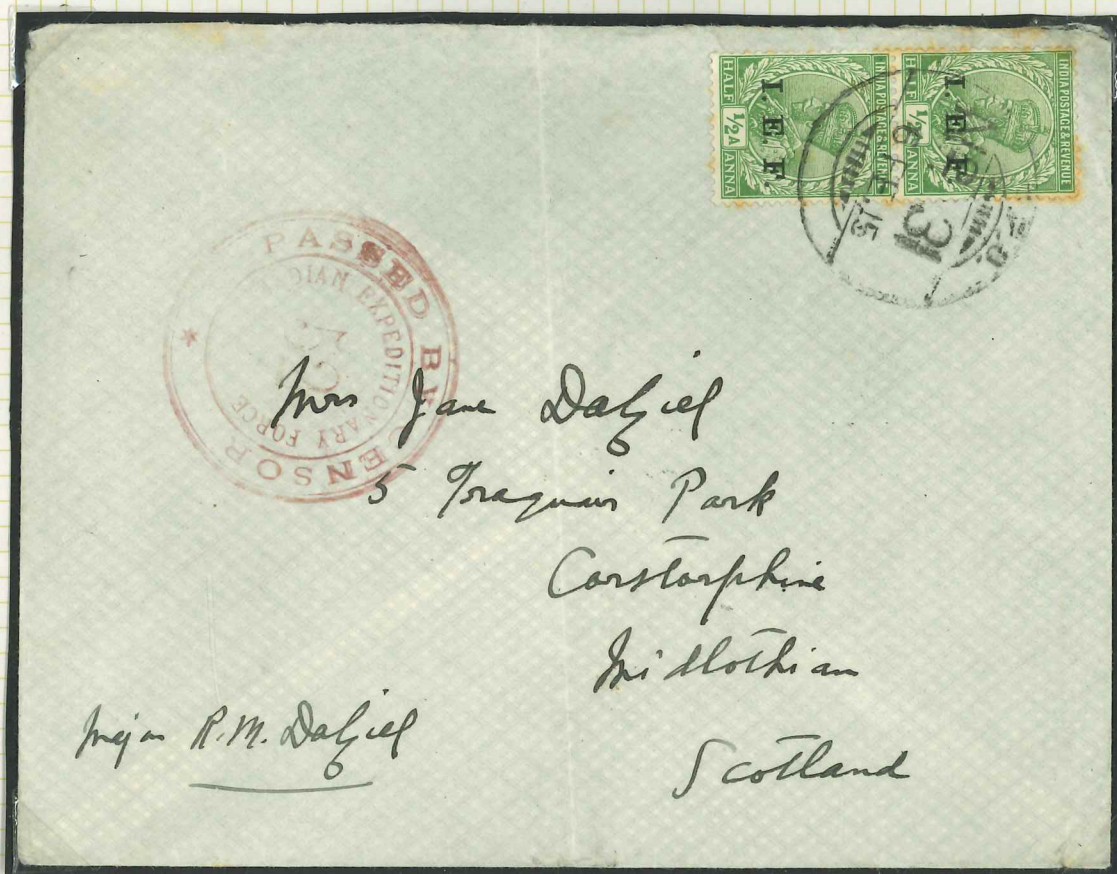 INDIA POSTAGE & REVENUE
I.E.F.
HALF 1/2A ANNA
INDIA POSTAGE & REVENUE
I.E.F.
HALF 1/2A ANNA
31
15
PASSED BY CENSOR
INDIAN EXPEDITIONARY FORCE
Mrs Jane Dalziel
5 Traquair Park
Corstorphine
Midlothian
Scotland
Major R.M. Dalziel